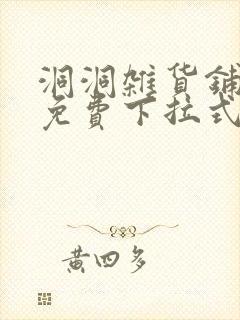 洞洞雜貨鋪
免費下拉式
黃四多